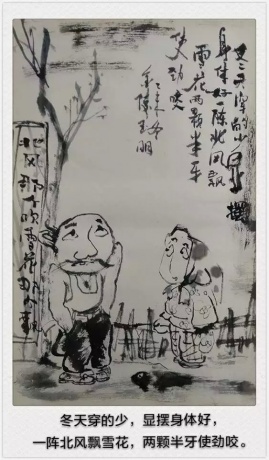 冬天穿的少显摆
身体好一阵北风飘
雪花两颗半牙
使劲咬
北风那个吹雪花那个飘
冬天穿的少，显摆身体好，
一阵北风飘雪花，两颗半牙使劲咬。